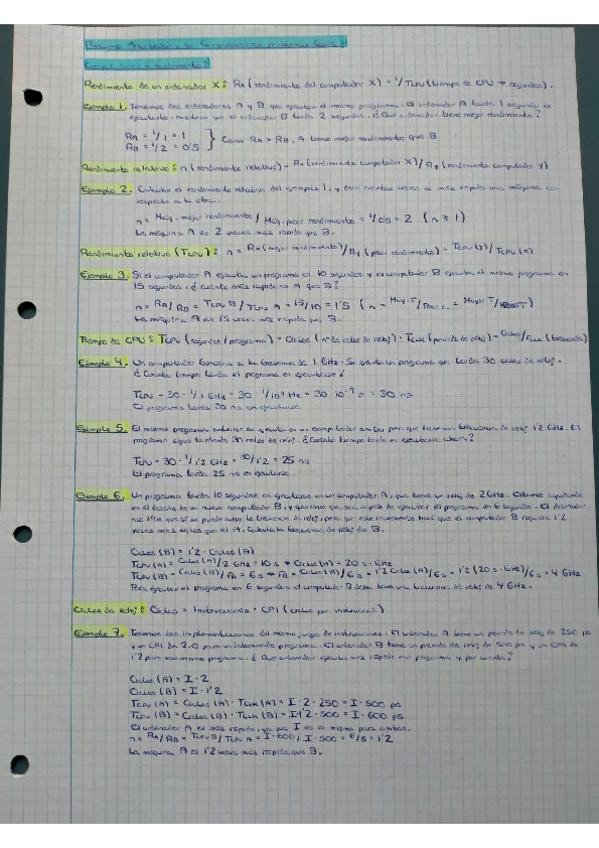 Rendimiento de un ordenador X: Rx (rendimiento del computador X) = 1/TCPU (tiempo de CPU → segundos).
Ejemplo 1. Tenemos dos ordenadores A y B que ejecutan el mismo programa. El ordenador A tarda 1 segundo en
ejecutarlo mientras que el ordenador B tarda 2 segundos. ¿Qué ordenador tiene mejor rendimiento?
RA = 1/1 = 1
RB = 1/2 = 0'5
Como RA > RB, A tiene mejor rendimiento que B
Rendimiento relativo: n (rendimiento relativo) = Rx (rendimiento computador X) / Ry (rendimiento computador Y)
Ejemplo 2. Calcular el rendimiento relativo del ejemplo 1, y decir cuántas veces es más rápida una máquina con
respecto a la otra.
n = Máq. mejor rendimiento / Máq. peor rendimiento = 1/0'5 = 2 (n ≥ 1)
La máquina A es 2 veces más rápida que B.
Rendimiento relativo (TCPU): n = Rx (mejor rendimiento) / Ry (peor rendimiento) = TCPU (Y) / TCPU (X)
Ejemplo 3. Si el computador A ejecuta un programa en 10 segundos y el computador B ejecuta el mismo programa en
15 segundos, ¿cuánto más rápido es A que B?
n = RA/RB = TCPU B / TCPU A = 15/10 = 1'5
La máquina A es 1'5 veces más rápida que B.
Tiempo de CPU: TCPU (segundos / programa) = Ciclos (nº de ciclos de reloj) · TCLK (periodo de reloj) = Ciclos/FCLK (frecuencia)
Ejemplo 4. Un computador funciona a la frecuencia de 1 GHz. Se ejecuta un programa que tarda 30 ciclos de reloj.
¿Cuánto tiempo tarda el programa en ejecutarse?
TCPU = 30 · 1/1 GHz = 30 · 1/10⁹ Hz = 30 · 10⁻⁹ s = 30 ns
El programa tarda 30 ns en ejecutarse.
Ejemplo 5. El mismo programa anterior se ejecuta en un computador similar pero que tiene una frecuencia de reloj 1'2 GHz. El
programa sigue tardando 30 ciclos de reloj. ¿Cuánto tiempo tarda en ejecutarse ahora?
TCPU = 30 · 1/1'2 GHz = 30/1'2 = 25 ns
El programa tarda 25 ns en ejecutarse.
Ejemplo 6. Un programa tarda 10 segundos en ejecutarse en un computador A, que tiene un reloj de 2 GHz. Estamos ayudando
en el diseño de un nuevo computador B, y queremos que sea capaz de ejecutar el programa en 6 segundos. El diseñador
nos dice que sí se puede subir la frecuencia de reloj, pero que este incremento hará que el computador B requiera 1'2
veces más ciclos que el A. Calcula la frecuencia de reloj de B.
Ciclos (B) = 1'2 · Ciclos (A)
TCPU (A) = Ciclos (A)/2 GHz = 10 s → Ciclos (A) = 20 s · GHz
Para ejecutar el programa en 6 segundos el computador B debe tener una frecuencia de reloj de 4 GHz.
Ciclos de reloj: Ciclos = Instrucciones · CPI (ciclos por instrucción)
Ejemplo 7. Tenemos dos implementaciones del mismo juego de instrucciones. El ordenador A tiene un periodo de reloj de 250 ps
y un CPI de 2.0 para un determinado programa. El ordenador B tiene un periodo de reloj de 500 ps y un CPI de
1'2 para ese mismo programa. ¿Qué ordenador ejecuta más rápido ese programa y por cuánto?
Ciclos (A) = I · 2
Ciclos (B) = I · 1'2
TCPU (A) = Ciclos (A) · TCLK (A) = I · 2 · 250 = I · 500 ps
TCPU (B) = Ciclos (B) · TCLK (B) = I · 1'2 · 500 = I · 600 ps
El ordenador A es más rápido, ya que I es el mismo para ambos.
n = RA/RB = TCPU B / TCPU A = I · 600 / I · 500 = 6/5 = 1'2
La máquina A es 1'2 veces más rápida que B.